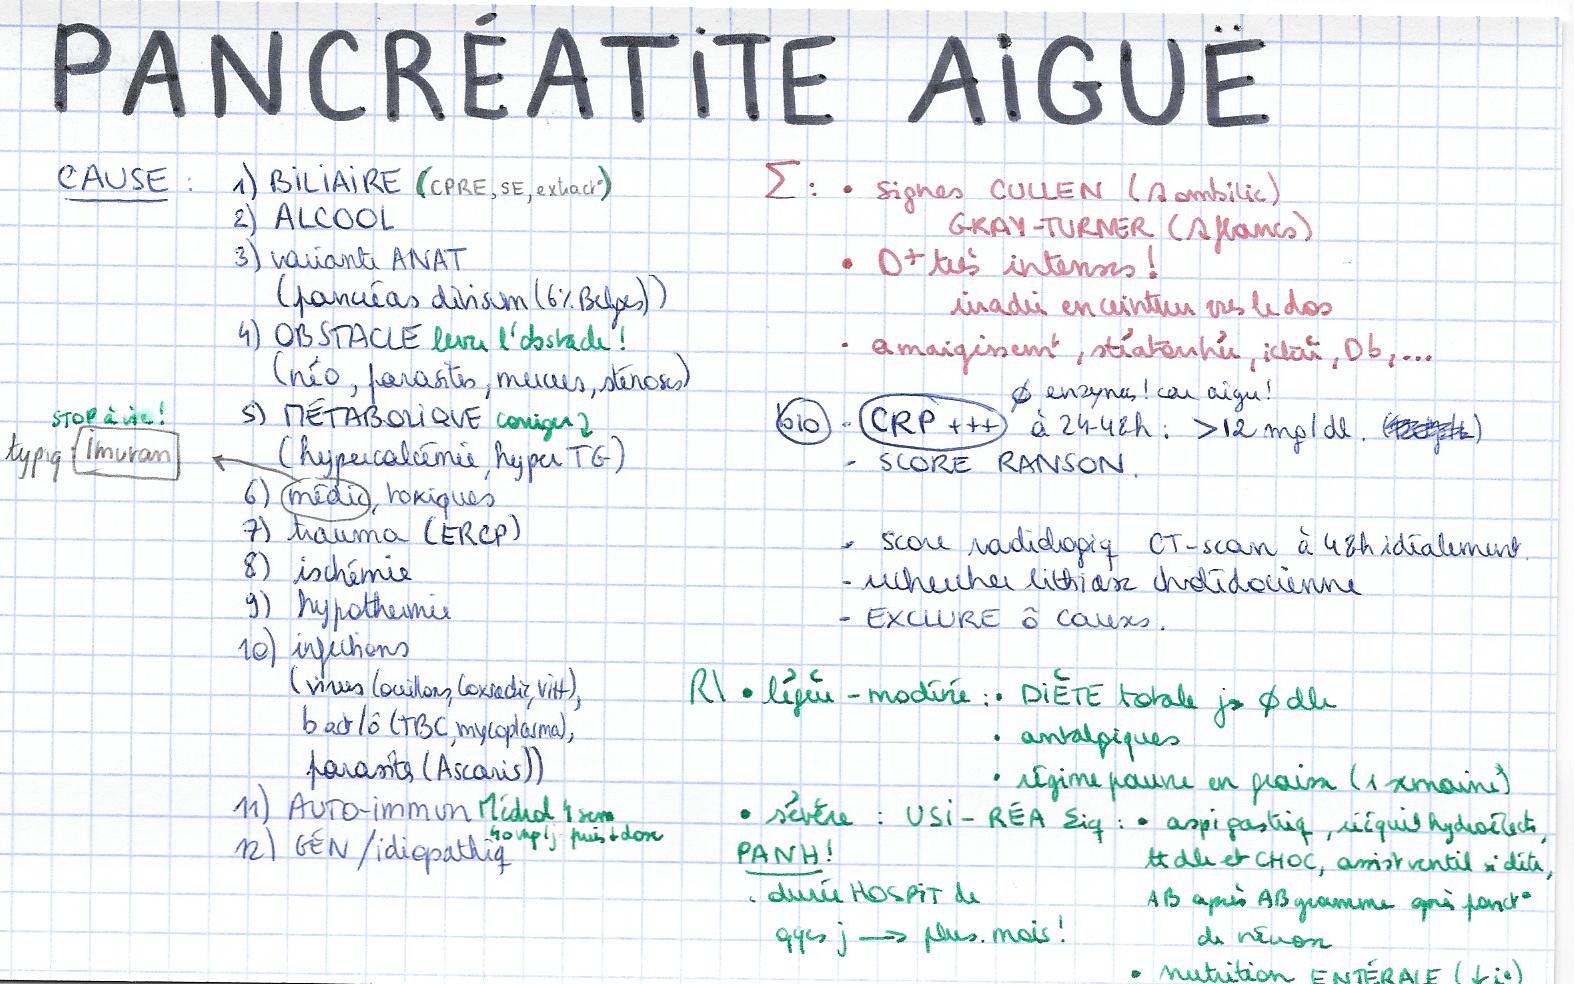 PANCRÉATITE AIGUË
CAUSE : 1) BILIAIRE (CPRE, SE, extract°)
2) ALCOOL
3) variante ANAT
(pancréas divisum (6% Belges))
4) OBSTACLE lever l'obstacle !
(néo, parasites, mucus, sténoses)
5) MÉTABOLIQUE corriger
(hypercalcémie, hyper TG)
STOP à vie !
typiq : Imuran
6) médic, toxiques
7) trauma (ERCP)
8) ischémie
9) hypothermie
10) infections
(virus (oreillons, Coxsackie, ),
bact/ô (TBC, mycoplasma),
parasites (Ascaris))
11) AUTO-immun Médrol 4 sem
40 mg/j puis ↓ dose
12) GÉN/idiopathiq
Σ : • signes CULLEN ( ombilic)
GRAY-TURNER ( flancs)
• D+ très intenses !
irradie en ceinture vers le dos
• amaigrissemt, stéatorrhée, ictère, Db, ...
ø enzymes ! car aigu !
bio - CRP +++ à 24-48h : >12 mg/dl.
- SCORE RANSON.
- score radiologiq CT-scan à 48h idéalement.
- rechercher lithiase cholédocienne
- EXCLURE ô causes.
R\ • légère - modérée : • DIÈTE totale jsq ø dlr
• antalgiques
• régime pauvre en graisse (1 semaine)
• sévère : USI - RÉA Σiq : • aspi gastriq, rééquil hydroélectr,
PANH !
tt dlr et CHOC, assist ventil si détr,
. durée HOSPIT de
AB après ABgramme après ponct°
qqes j → plus. mois !
de nécrose
• nutrition ENTÉRALE (↓ i°)